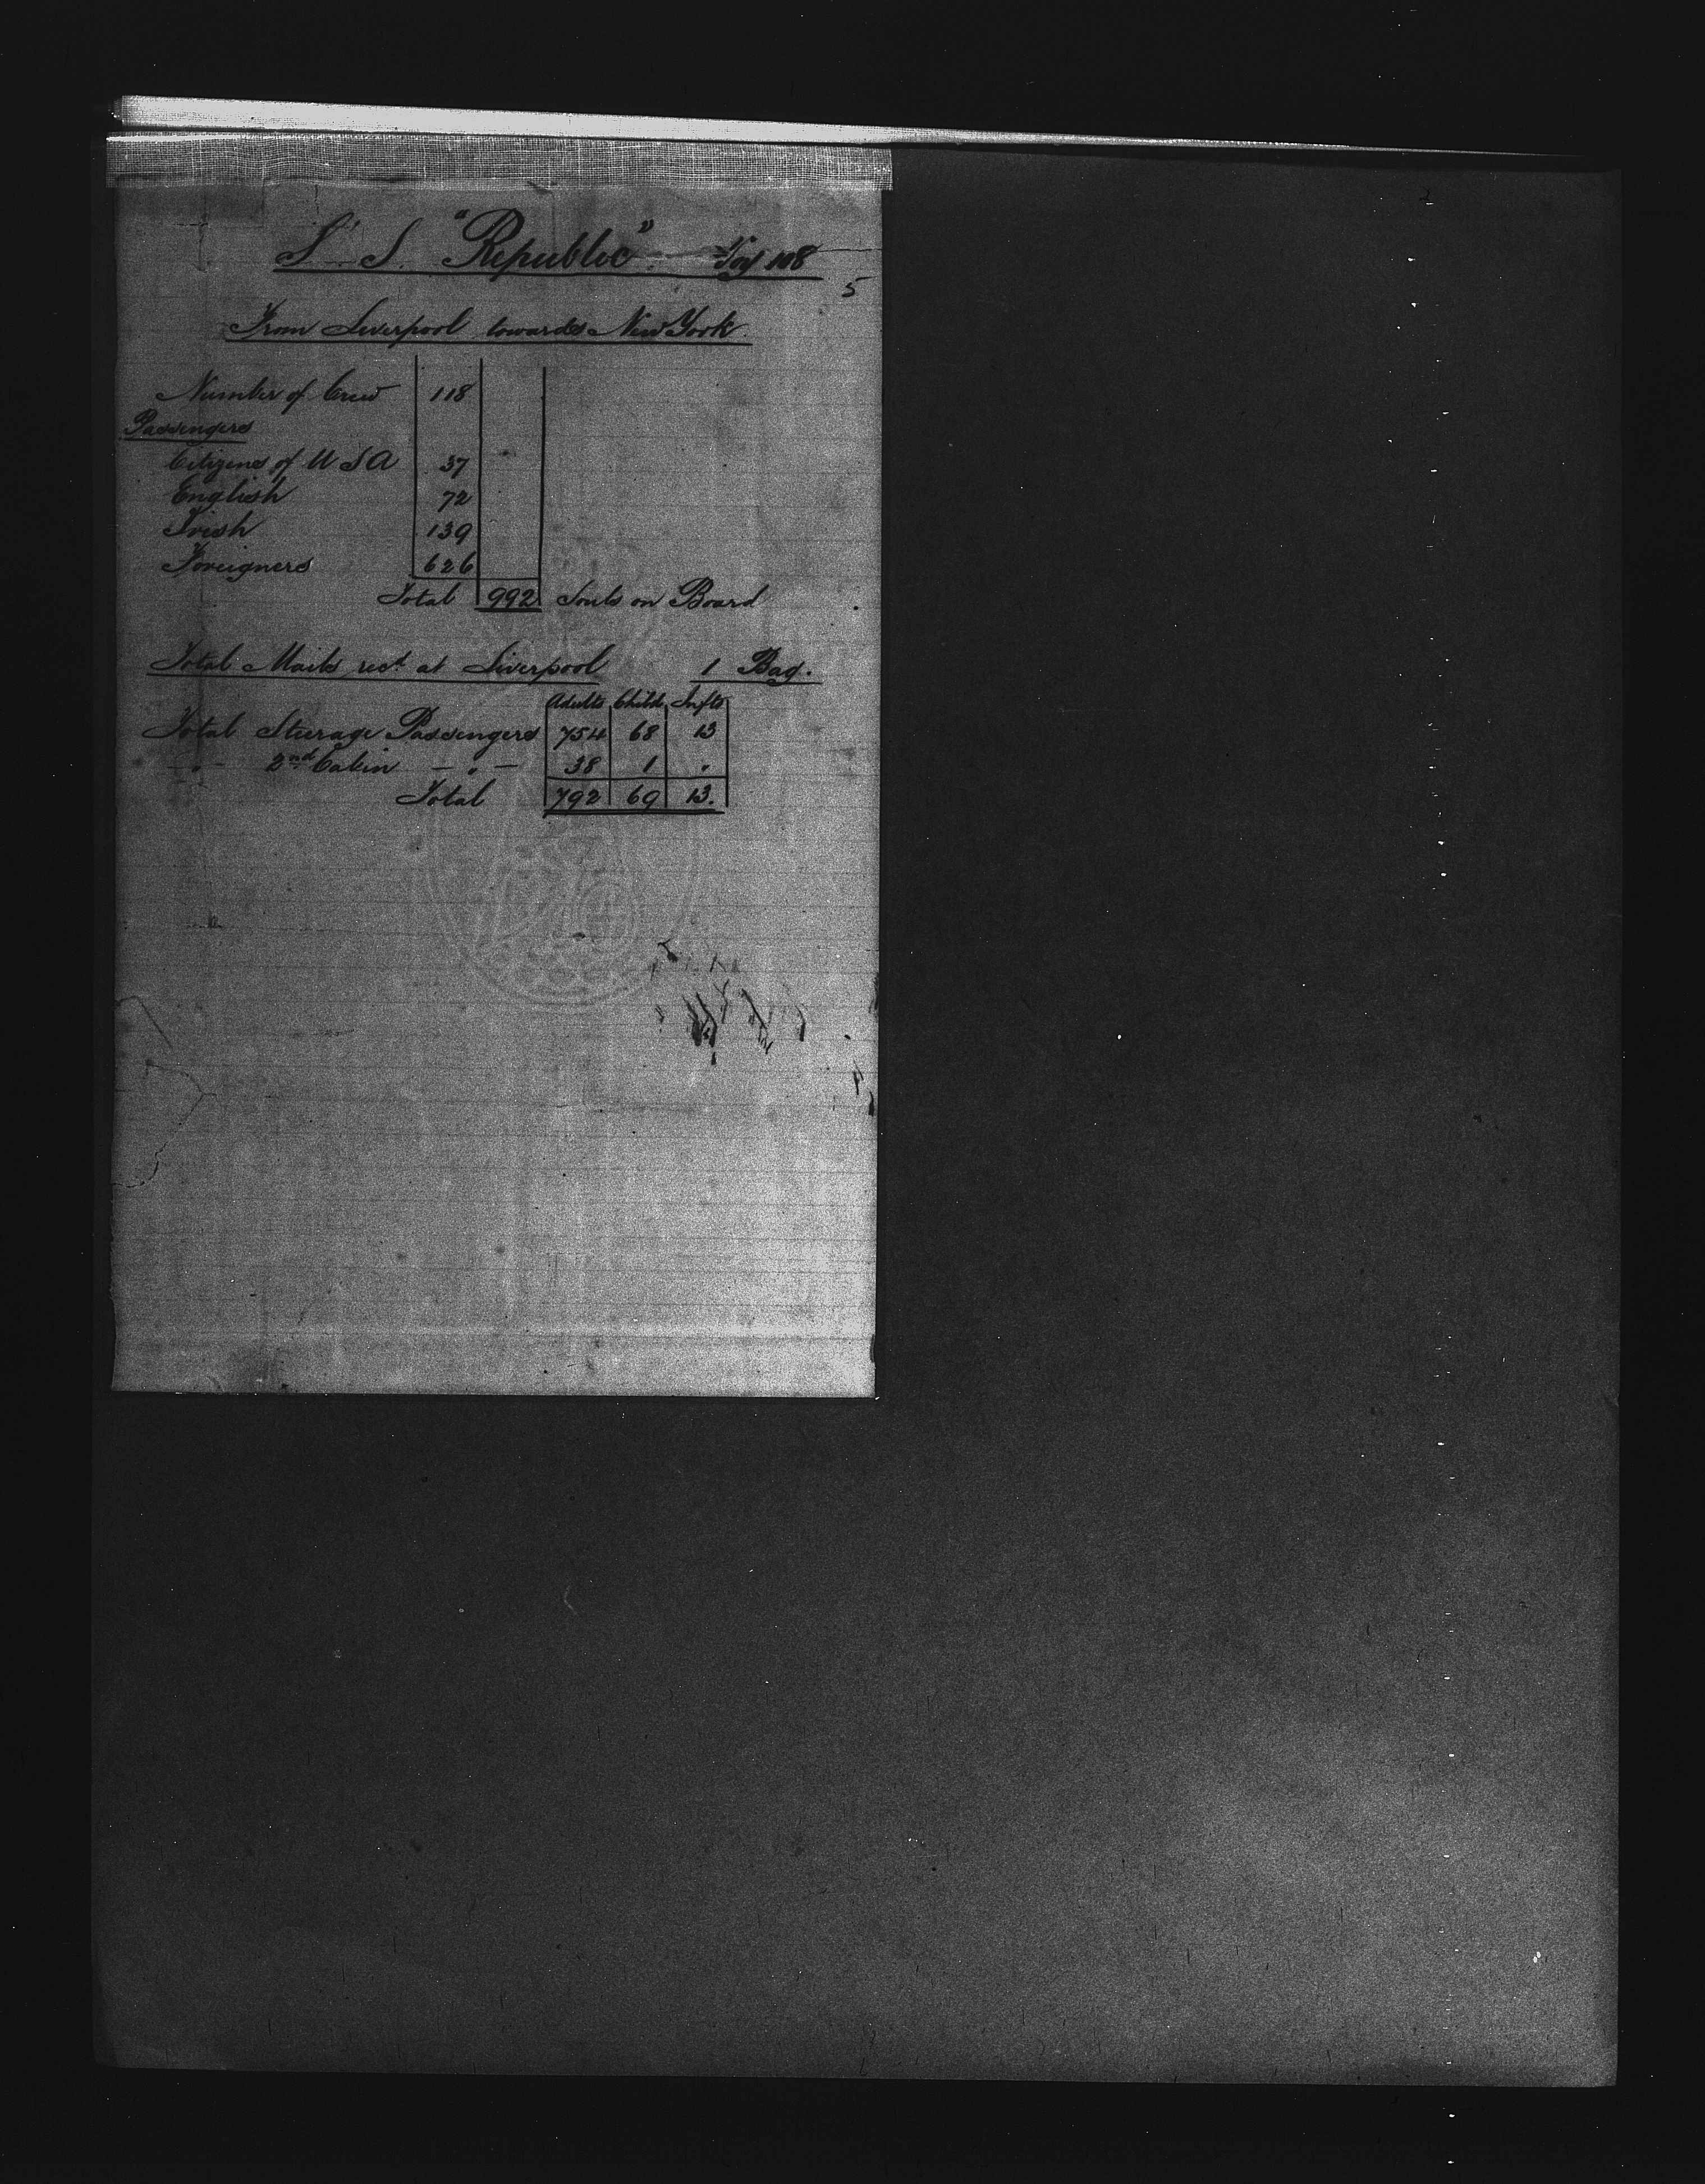 S.S. "Republic". Voy 108
5
From Liverpool towards New York.
Number of Crew 118
Passengers
Citizens of U S A 37
English 72
Irish 139
Foreigners 626
Total 992 Souls on Board
Total Mails recd at Liverpool 1 Bag.
Adults Child Infts
Total Steerage Passengers 754 68 13
- " - 2nd Cabin - " - 38 1 "
Total 792 69 13.